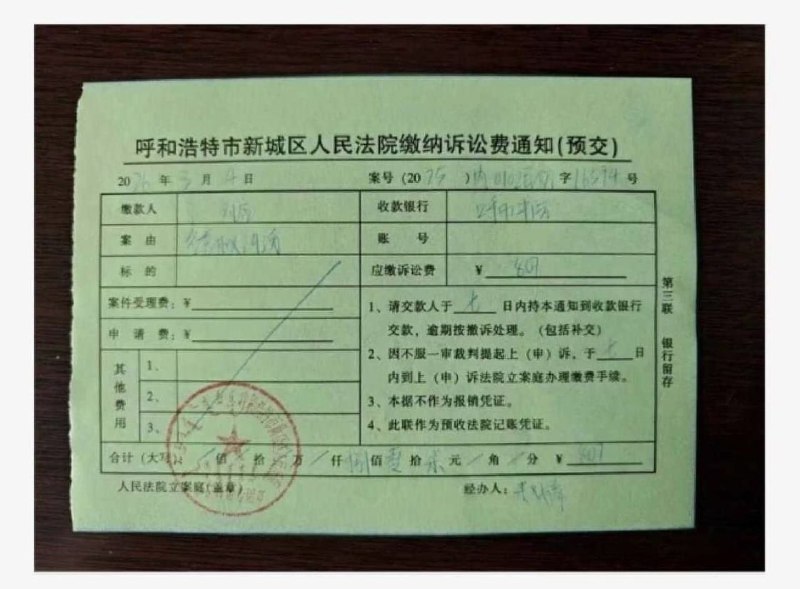 呼和浩特市新城区人民法院缴纳诉讼费通知(预交)
2026年3月4日 案号(2025)内0102 字16594号
缴款人 收款银行
案由 账号
标的 应缴诉讼费 ¥807
案件受理费：¥
申请费：¥
其他费用
1、
2、
3、
1、请交款人于七日内持本通知到收款银行
交款，逾期按撤诉处理。（包括补交）
2、因不服一审裁判提起上（申）诉，于七日
内到上（申）诉法院立案庭办理缴费手续。
3、本据不作为报销凭证。
4、此联作为预收法院记账凭证。
合计（大写）：佰拾万仟捌佰零拾柒元角分 ¥807
人民法院立案庭(盖章) 经办人：
第三联 银行留存